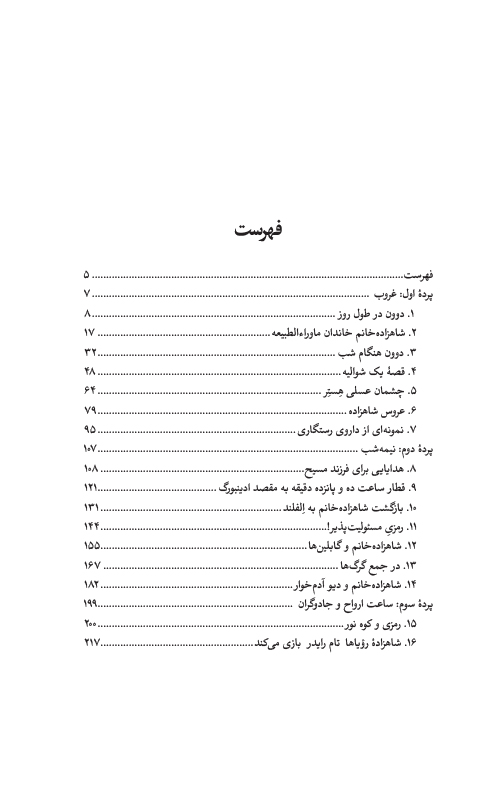 فهرست
فهرست ........ ۵
پردهٔ اول: غروب ........ ۷
۱. دوون در طول روز ........ ۸
۲. شاهزاده‌خانم خاندان ماوراءالطبیعه ........ ۱۷
۳. دوون هنگام شب ........ ۳۲
۴. قصهٔ یک شوالیه ........ ۴۸
۵. چشمان عسلی هِستِر ........ ۶۴
۶. عروس شاهزاده ........ ۷۹
۷. نمونه‌ای از داروی رستگاری ........ ۹۵
پردهٔ دوم: نیمه‌شب ........ ۱۰۷
۸. هدایایی برای فرزند مسیح ........ ۱۰۸
۹. قطار ساعت ده و پانزده دقیقه به مقصد ادینبورگ ........ ۱۲۱
۱۰. بازگشت شاهزاده‌خانم به اِلفلند ........ ۱۳۱
۱۱. رمزیِ مسئولیت‌پذیر! ........ ۱۴۴
۱۲. شاهزاده‌خانم و گابلین‌ها ........ ۱۵۵
۱۳. در جمع گرگ‌ها ........ ۱۶۷
۱۴. شاهزاده‌خانم و دیو آدم‌خوار ........ ۱۸۲
پردهٔ سوم: ساعت ارواح و جادوگران ........ ۱۹۹
۱۵. رمزی و کوه نور ........ ۲۰۰
۱۶. شاهزادهٔ رؤیاها تام رایدر بازی می‌کند ........ ۲۱۷